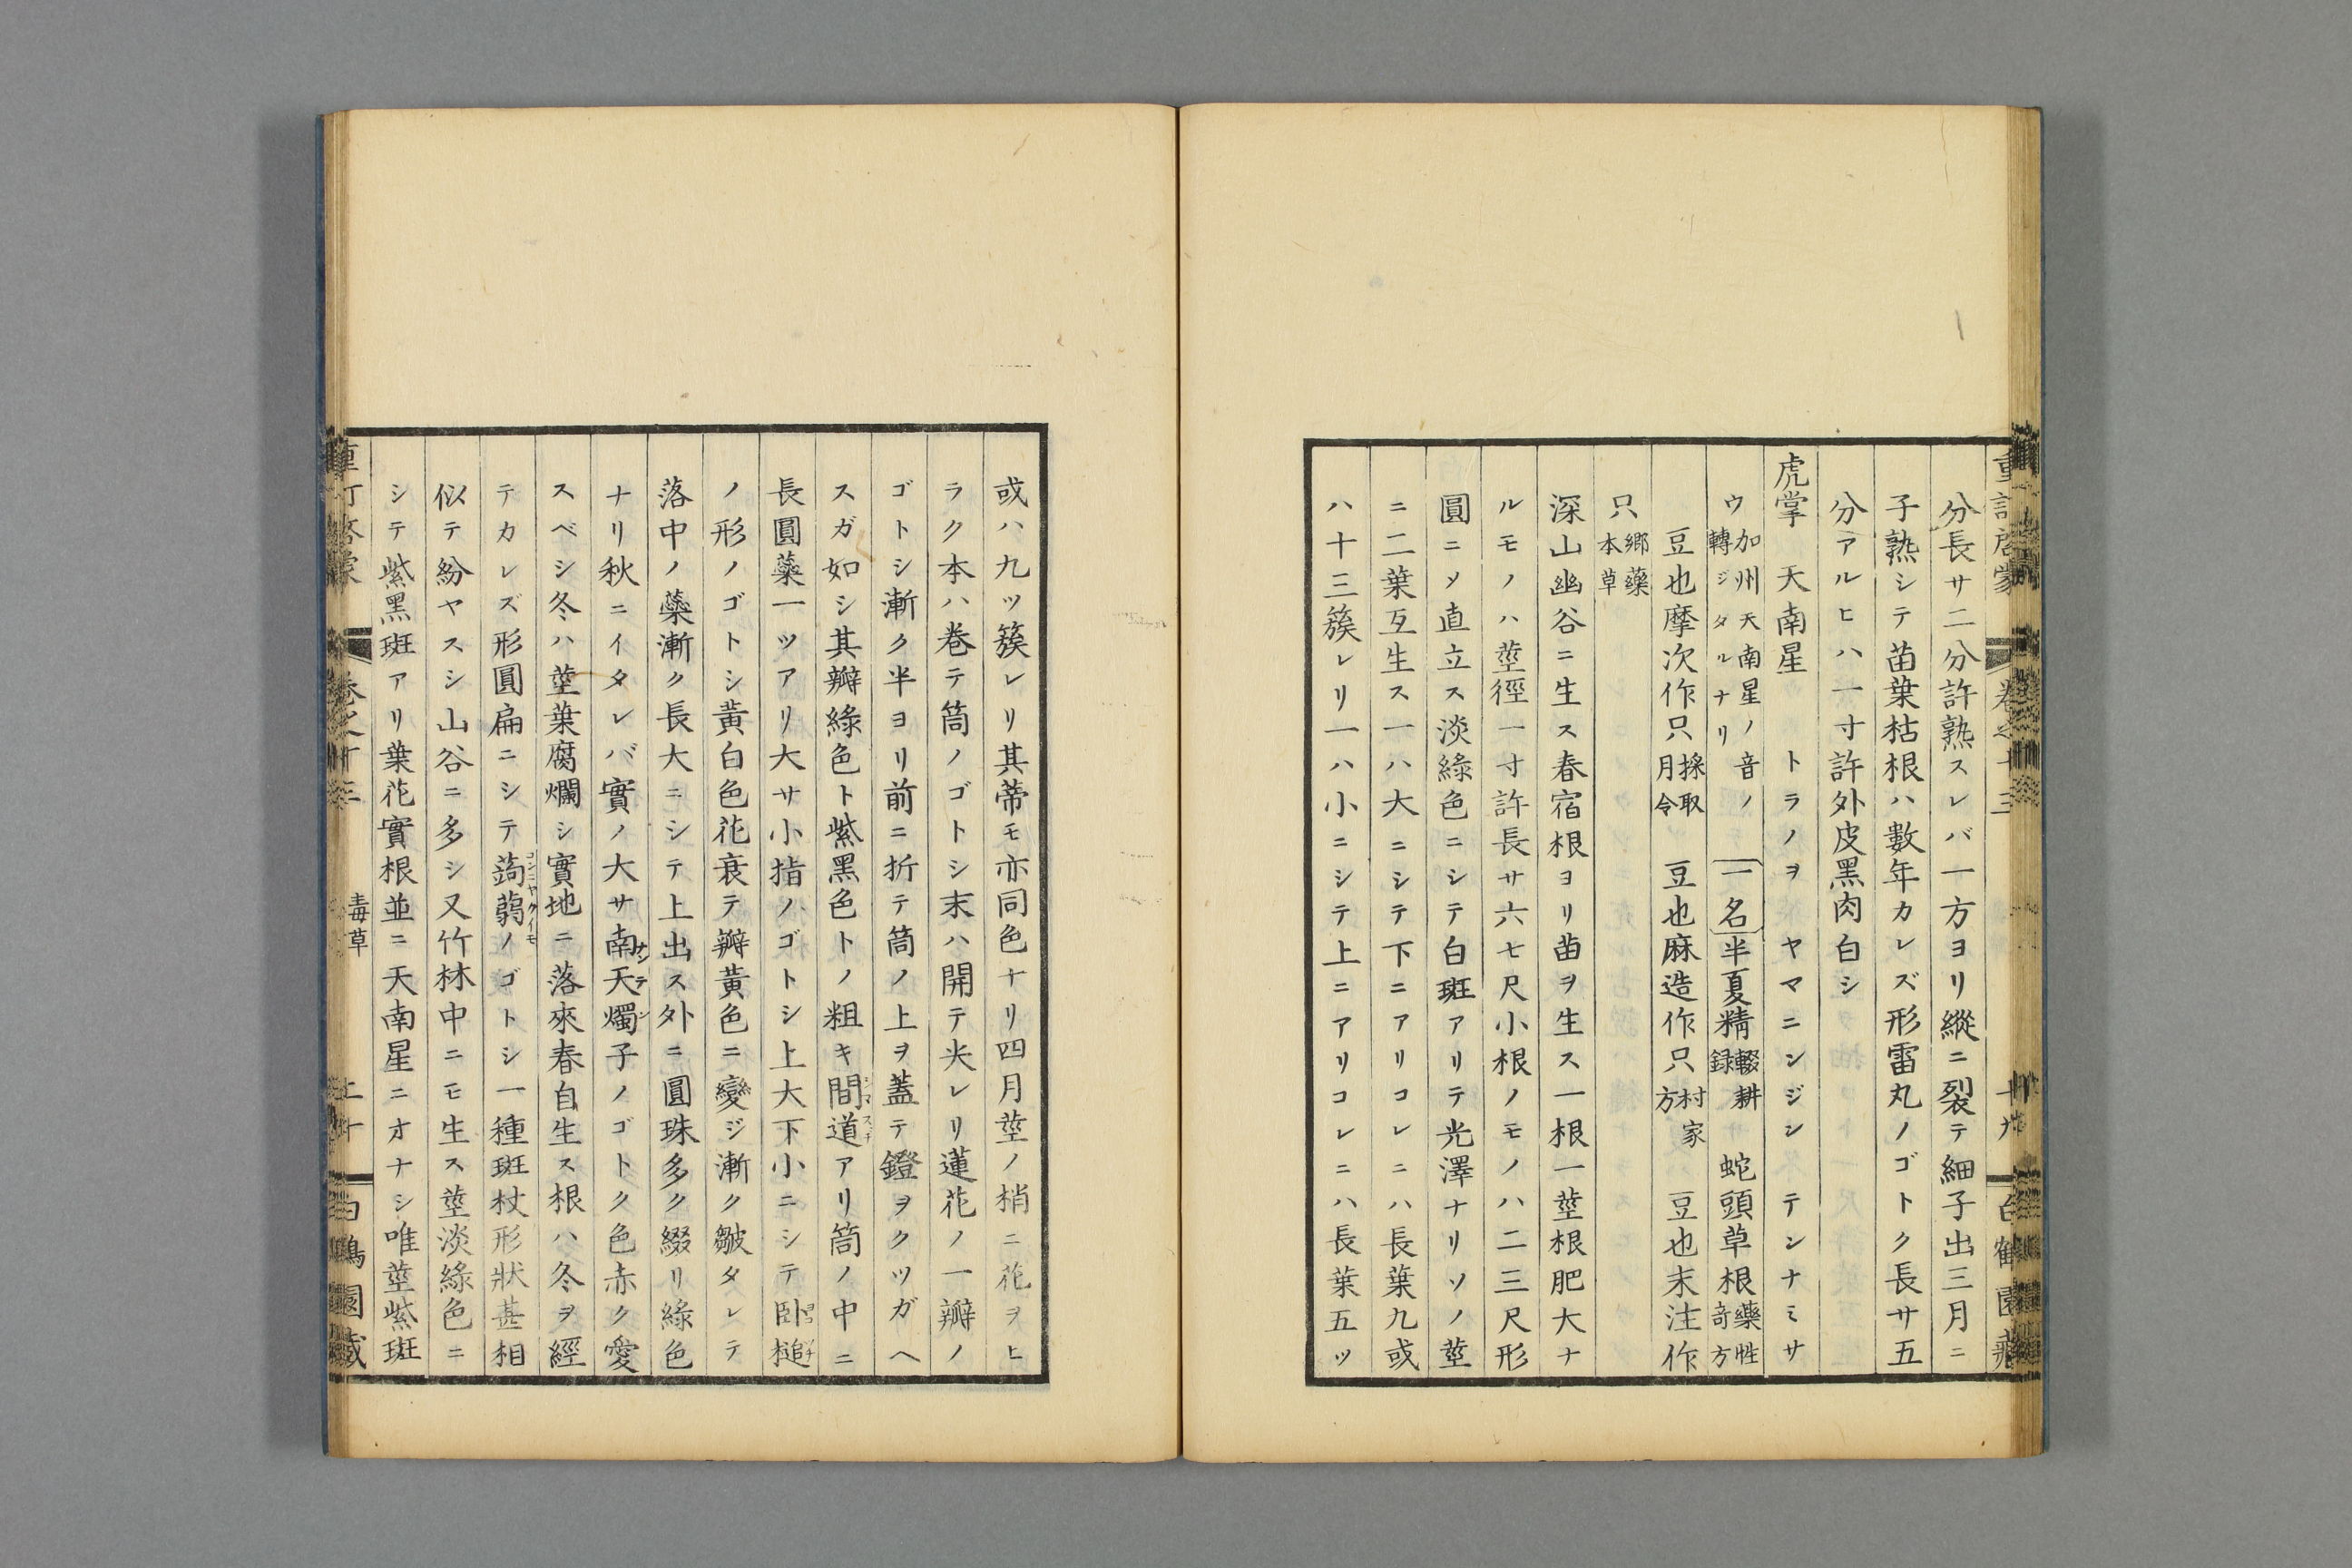 分長サ二分許熟スレバ一方ヨリ縱ニ裂テ細子出三月ニ
子熟シテ苗葉枯根ハ數年カレズ形雷丸ノゴトク長サ五
分アルヒハ一寸許外皮黑肉白シ
虎掌 天南星 トラノヲ ヤマニンジン テンナミサ
ウ 加州天南星ノ音ノ
轉ジタルナリ
一名 半夏精 輟耕
録
蛇頭草根 藥性
竒方
豆也摩次作只 採取
月令
豆也麻造作只 村家
方
豆也末注作
只 鄉藥
本草
深山幽谷ニ生ス春宿根ヨリ苗ヲ生ス一根一莖根肥大ナ
ルモノハ莖徑一寸許長サ六七尺小根ノモノハ二三尺形
圓ニメ直立ス淡綠色ニシテ白斑アリテ光澤ナリソノ莖
ニ二葉互生ス一ハ大ニシテ下ニアリコレニハ長葉九或
ハ十三簇レリ一ハ小ニシテ上ニアリコレニハ長葉五ツ
或ハ九ツ簇レリ其蒂モ亦同色ナリ四月莖ノ梢ニ花ヲヒ
ラク本ハ卷テ筒ノゴトシ末ハ開テ尖レリ蓮花ノ一瓣ノ
ゴトシ漸ク半ヨリ前ニ折テ筒ノ上ヲ蓋テ鐙ヲクツガヘ
スガ如シ其瓣綠色ト紫黑色トノ粗キ間道アリ筒ノ中ニ
長圓蘂一ツアリ大サ小指ノゴトシ上大下小ニシテ臥槌
ノ形ノゴトシ黃白色花衰テ瓣黃色ニ變ジ漸ク皺タレテ
落中ノ蘂漸ク長大ニシテ上出ス外ニ圓珠多ク綴リ綠色
ナリ秋ニイタレバ實ノ大サ南天燭子ノゴトク色赤ク愛
スベシ冬ハ莖葉腐爛シ實地ニ落來春自生ス根ハ冬ヲ經
テカレズ形圓扁ニシテ蒟蒻ノゴトシ一種斑杖形狀甚相
似テ紛ヤスシ山谷ニ多シ又竹林中ニモ生ス莖淡綠色ニ
シテ紫黑斑アリ葉花實根並ニ天南星ニオナシ唯莖紫斑
毒草